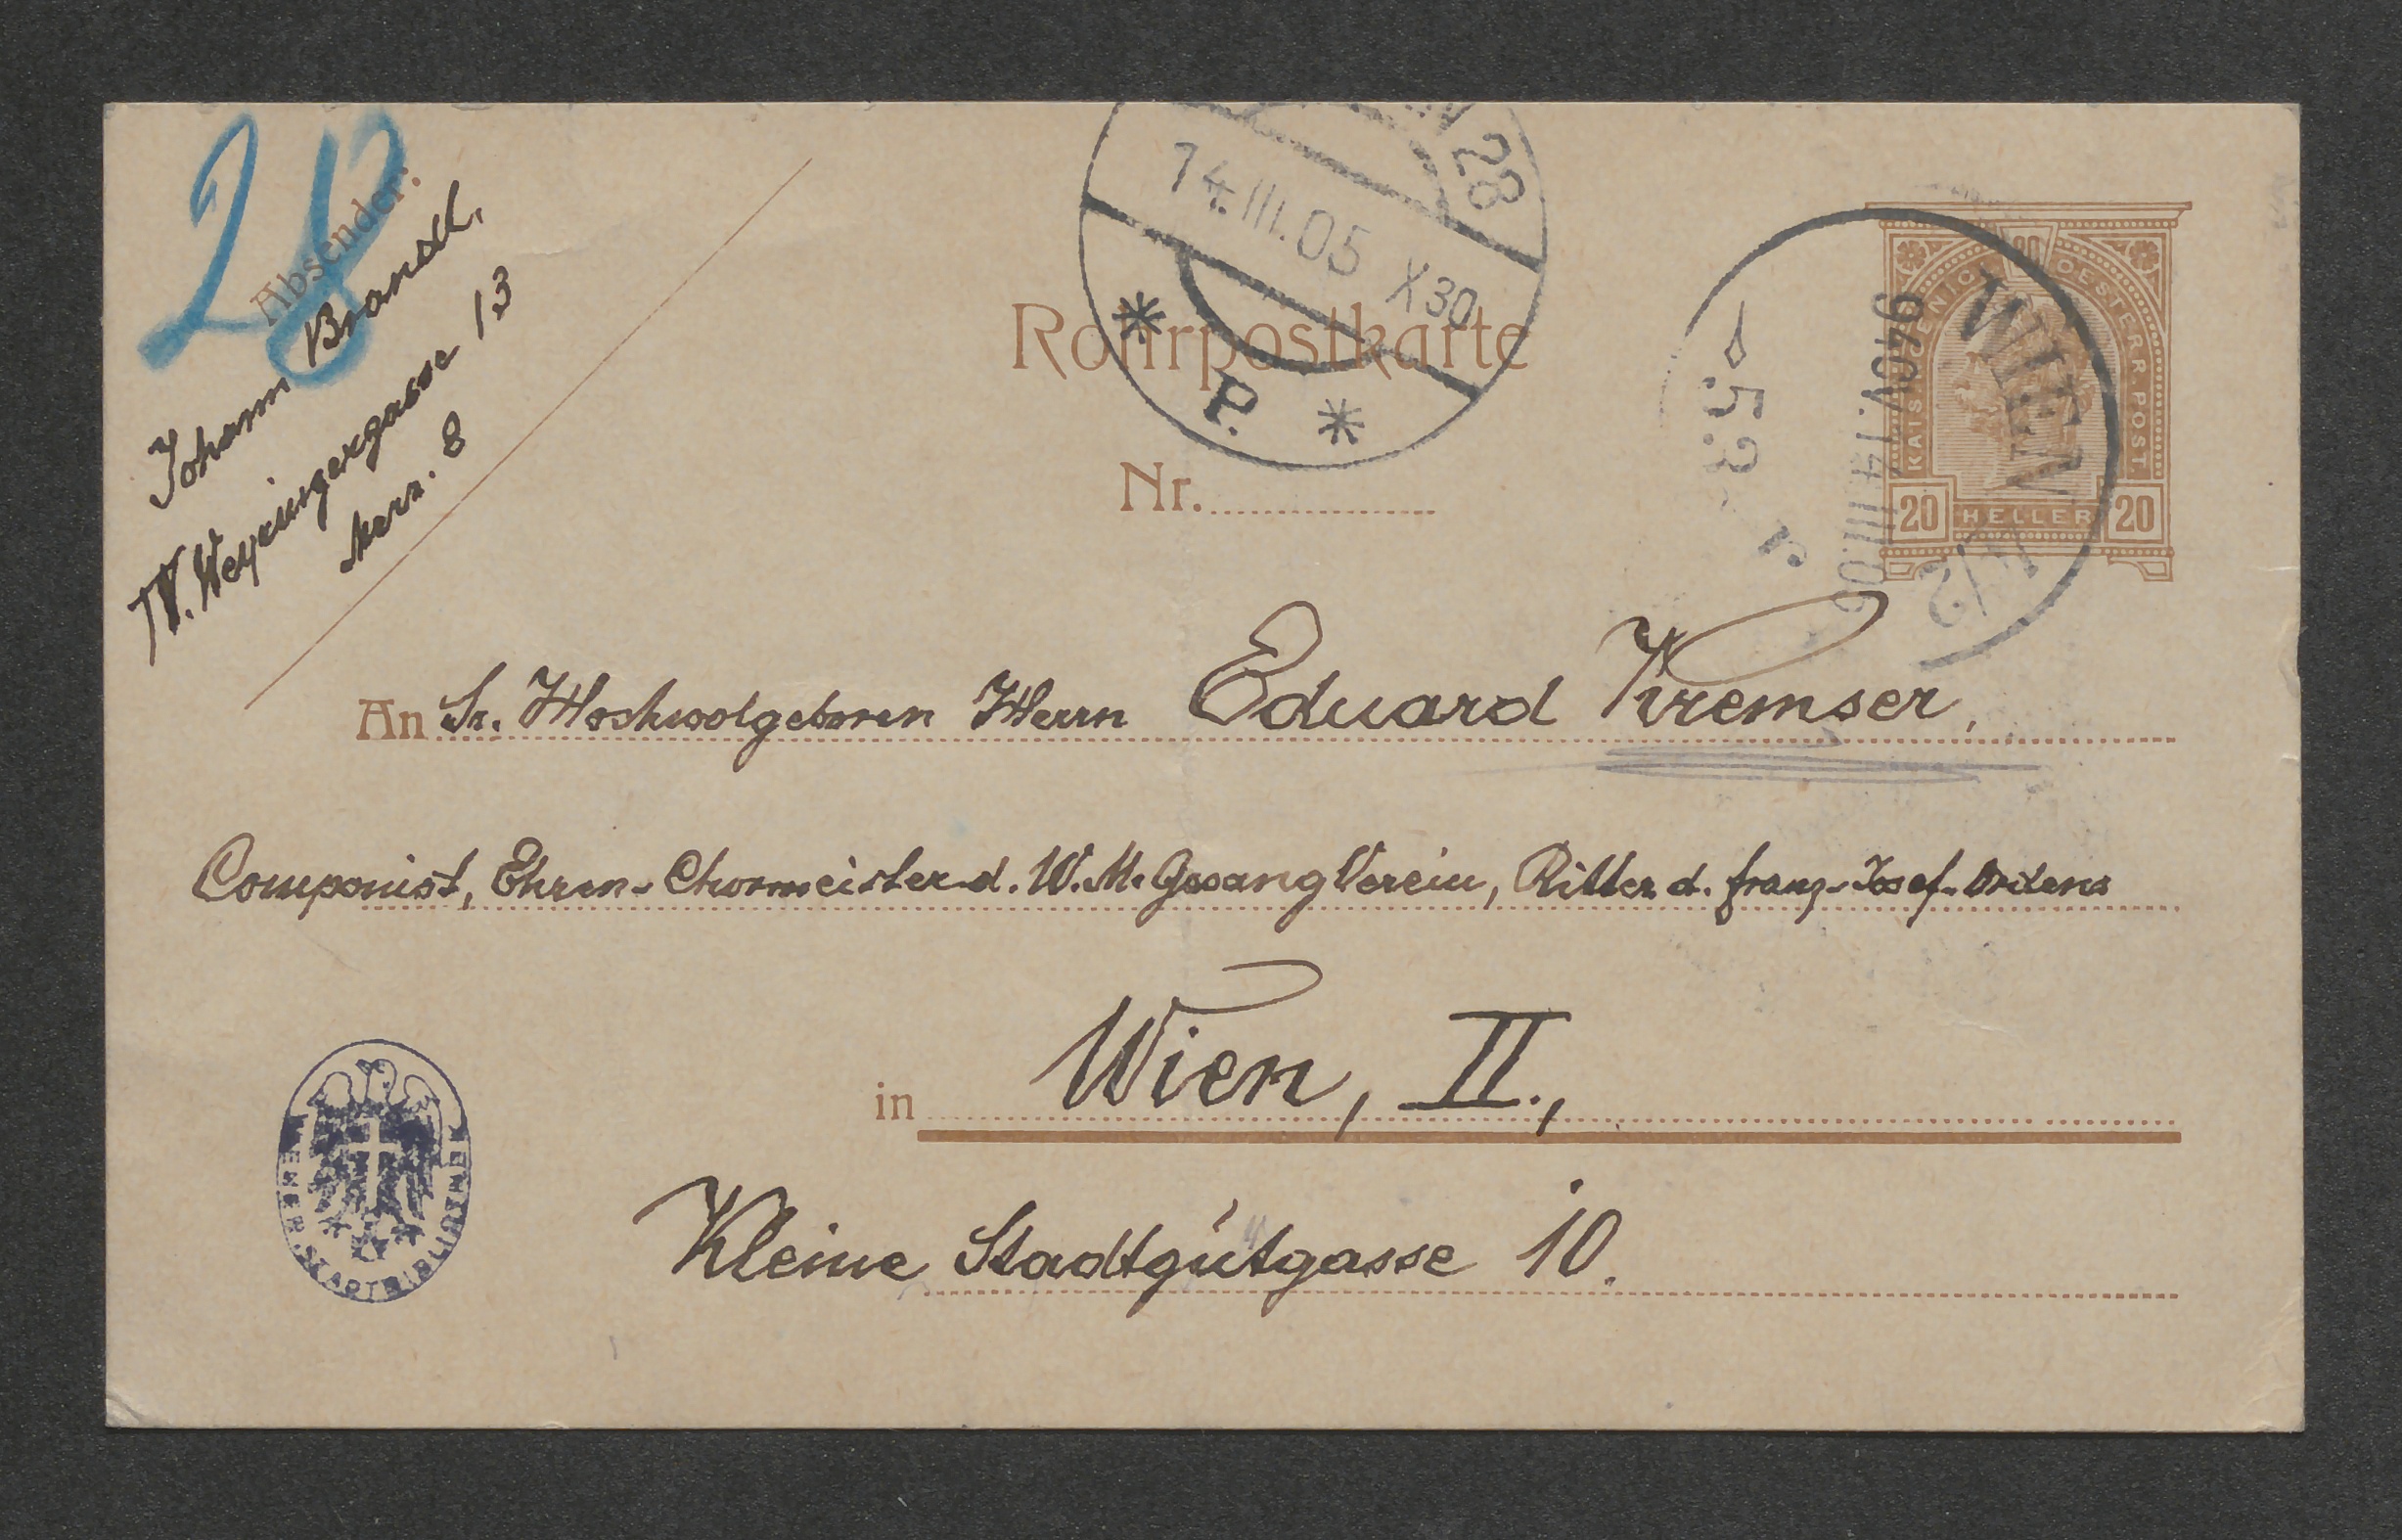 28
Absender:
Johann Brandl,
IV. Weyringergasse 13
Merz. 8
28
14.III.05 X30
* P. *
Rohrpostkarte
Nr.
WIEN
940V. 14 III.05
5 3
KAIS. KOENIGL. OESTERR. POST
20 HELLER 20
An Sr. Hochwolgeboren Herrn Eduard Kremser,
Componist, Ehren-Chormeister d. W. M. Gesang Verein, Ritter d. Franz-Josef-Ordens
in Wien, II.,
Kleine Stadtgutgasse 10.
WIENER STADTBIBLIOTHEK